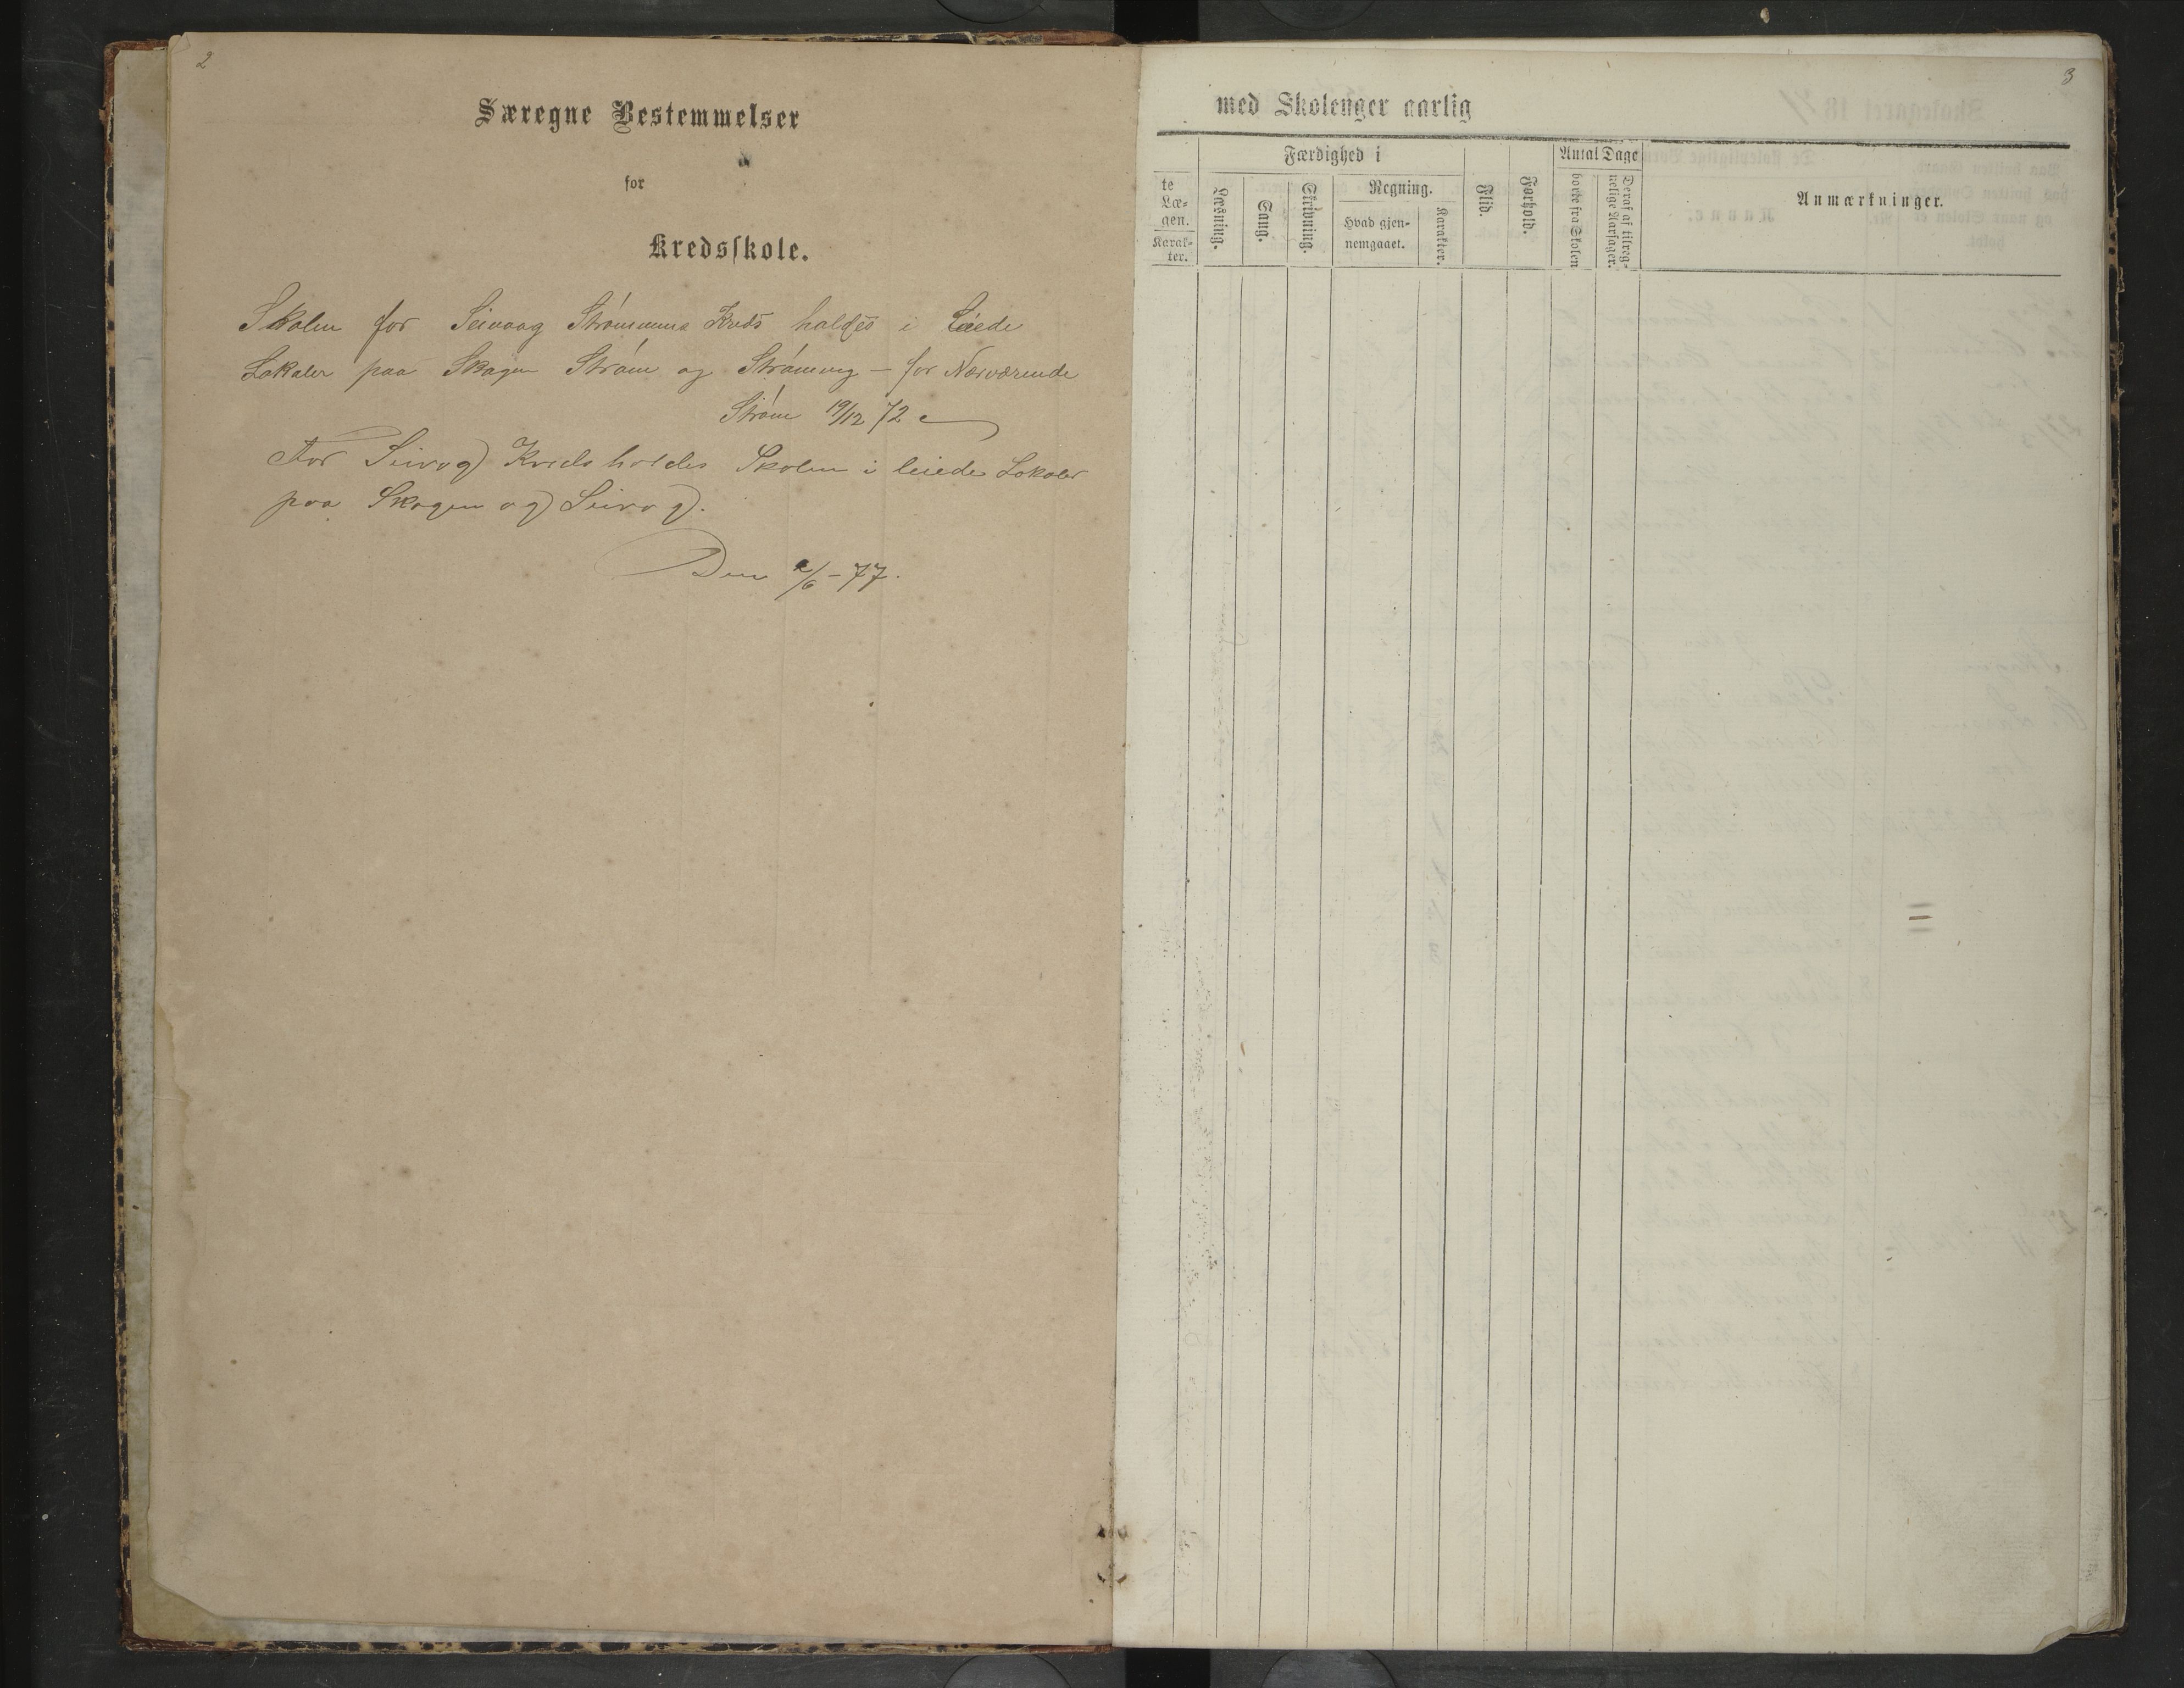 2
Særegne Bestemmelser
for
Kredsskole.
Skolen for Seivaag Strømmens Kreds holdes i Leiede
Lokaler paa Skagen Strøm og Strømsvg – for Nærværende
Strøm 19/12 72
For Seivog Kreds holdes Skolen i leiede Lokaler
paa Skogen og Seivog.
Den /6 – 77.
3
med Skolenger aarlig
te Læ-
gen.
Karak-
ter.
Færdighed i
Læsning.
Sang.
Skrivning.
Regning.
Hvad gjen-
nemgaaet.
Karakter.
Flid.
Forhold.
Antal Dage
borte fra Skolen
Deraf af tilreg-
nelige Aarsager.
Anmærkninger.